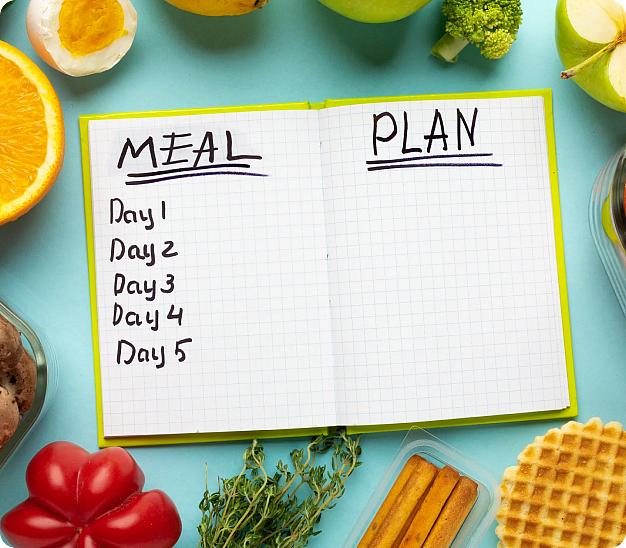 MEAL PLAN
Day 1
Day 2
Day 3
Day 4
Day 5